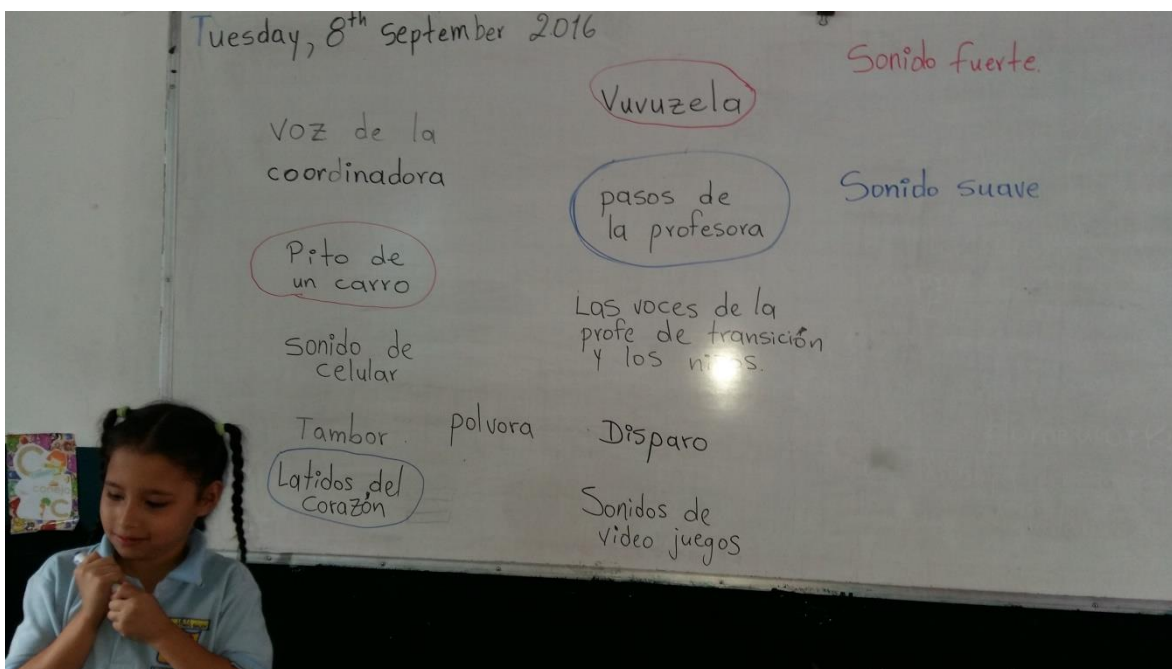 Tuesday, 8th September 2016
Sonido fuerte.
Vuvuzela
voz de la
coordinadora
Sonido suave
pasos de
la profesora
Pito de
un carro
Las voces de la
profe de transición
y los
sonido de
celular
Tambor.
polvora
Disparo
Latidos del
corazón
Sonidos de
video juegos